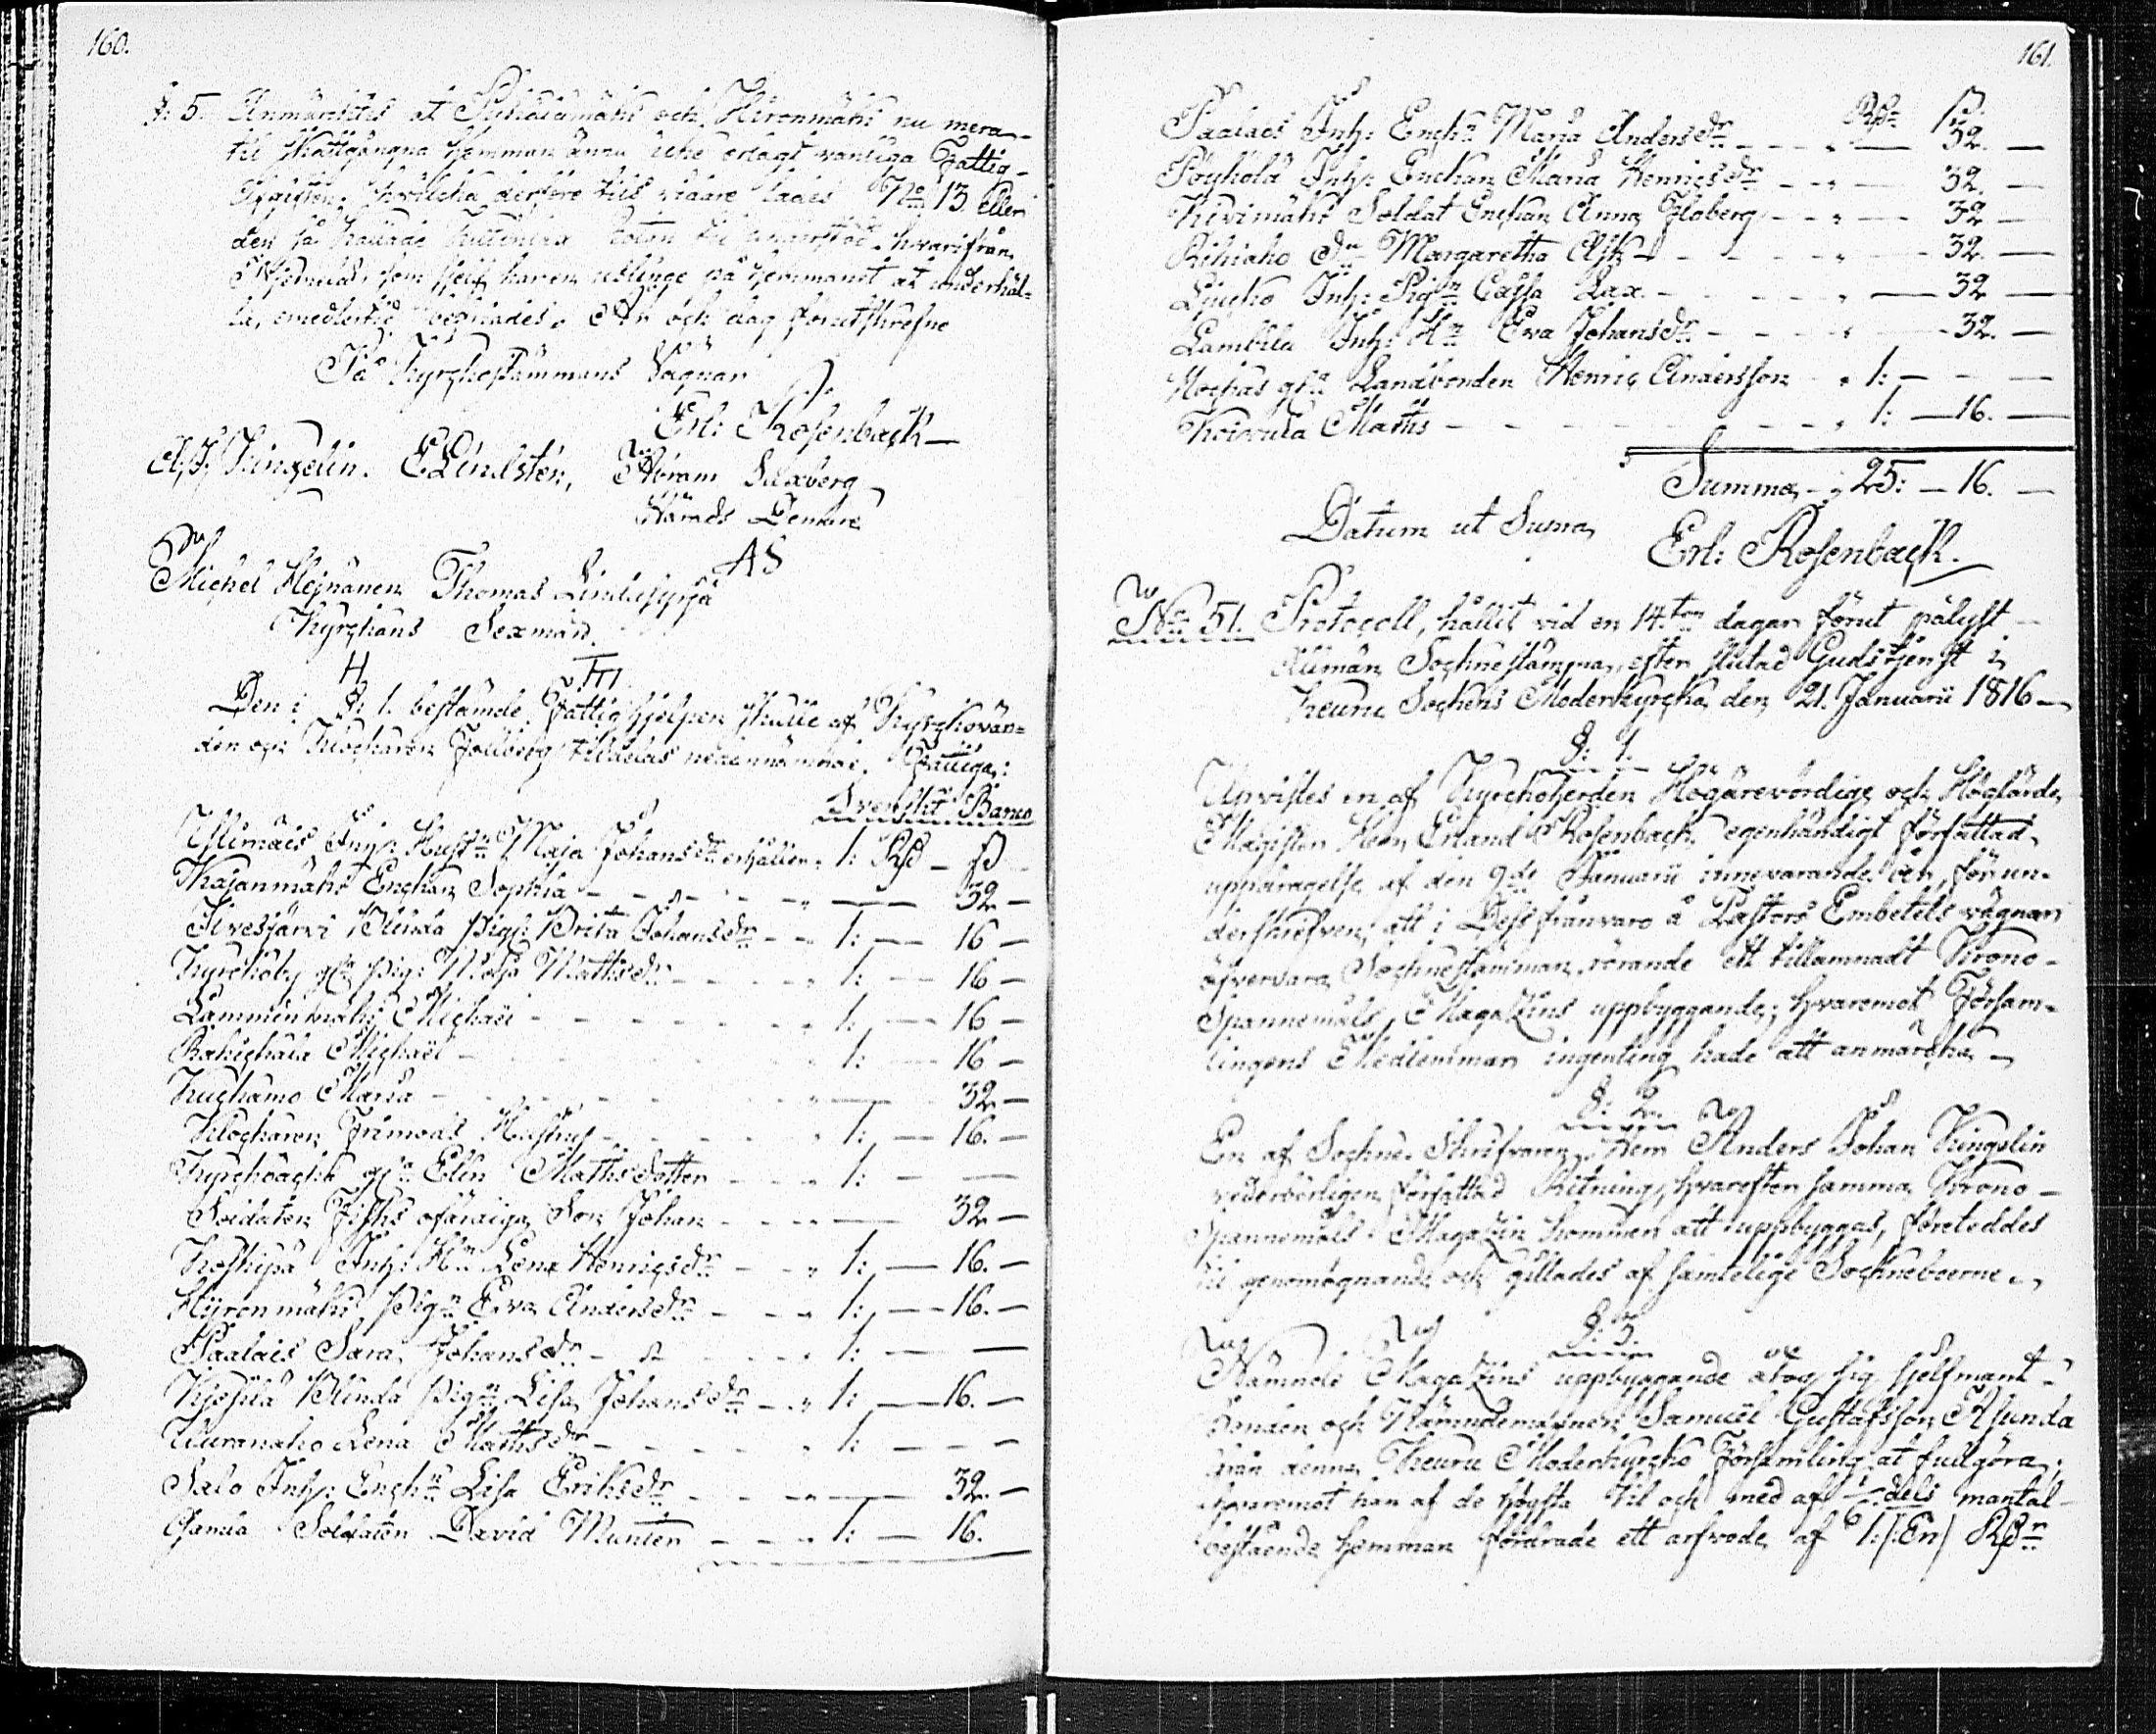 160.
§: 5. Anmärktes at och Hironmäki nu mera
til skattgångna Hemman ännu icke erlagt vanliga Fattig-
Afgiften, hvilcka derföre tils vidare lades N:o 13. eller
den så kallade Roten til understöd. hvarifrån
som sjelf har en usling på Hemmanet at underhål-
la, emedlertid befriades. År och dag förutskrefne
På Kyrckostämmans Vägnar
Erl: Rosenback
A. J. Kingelin. E Lindsten, Abram Saxberg
Härads Domare
AS
Michel Hejnänen Thomas Lindasyrjä
Kyrckans Sexmän.
H
Den i §: 1. bestämde Fattighjelpen skulle af Kyrckovär-
den och Klockaren Fallberg tildelas nedannämnde Fattiga:
Svenskt Banco
Ylimäis Inh: Hust:n Maja Johansd:r erhåller 1: Rd – ß
Kajanmäki Enckan Sophia 32 –
Ilvesjärvi Blinda pig: Brita Johansd:r 1: – 16 –
Kyrckoby gl:a pig: Walp: Mattsd:r 1: – 16 –
Lamminmäki Michaël 1: – 16 –
Michaël 1: – 16 –
Kuckamo Maria 32 –
Klockaren Frimods Hustru 1: – 16. –
Kyrckbacka gl:a Elin Matts dotter 1: – –
Soldaten Fisks ofärdiga Son Johan 32 –
Koskipä Inh: H:u Lena Henricsd:r 1: – 16. –
Hyronmäki pig:n Eva Andersd:r 1: – 16. –
Paalais Sara Johansd:r 1: – –
Blinda pig:n Lisa Johansd:r 1: – 16. –
Lena Mattsd:r 1: – –
Salo Inh: Enck:n Lisa Eriksd:r 32. –
Soldaten David Munter 1: – 16.
161.
Rd:r ß.
Paalaes Inh: Enck:n Maria Andersd:r 32. –
Pöyhölä Inh: Enckan Maria Henricsd:r 32. –
Kivimäki Soldat Enckan Anna Floberg 32 –
Rihiaho d:o Margaretha Ask 32. –
Liucko Inh: Pig:n Cajsa Lax 32 –
Lambila Inh: H:u Eva Johansd:r 32. –
gl:a Landbonden Henric Andersson 1: – –
Koivula Matts 1: – 16. –
Summa 25: – 16. –
Datum ut Supra
Erl: Rosenback.
N:o 51. Protocoll, hållit vid en 14.ton dagar förut pålyst
Allmän Sochnestämma, efter slutad Gudstjenst i
Keuru Sochens Moderkyrcka den 21. Januarii 1816
§: 1.
Upvistes en af Kyrckoherden Högärevördige och Höglärde
Magister Herr Erland Rosenback egenhändigt författad
uppdragelse af den 9de Januarii innevarande år, för un-
derskrefven, att i Dess frånvaro å Pastors Embetets vägnar
öfvervara Sochnestämman, rörande ett tillämnadt Krono-
Spannemåls Magazins uppbyggande; hvaremot Försam-
lingens Medlemmar ingenting hade att anmärcka
§: 2.
En af Sochne-Skrifvaren Herr Anders Johan Kingelin
vederbörligen författad Ritning, hvarefter samma Krono-
Spannemåls-Magazin kommer att uppbyggas, företeddes
til genomögnande och gillades af samtelige Sochneboerne
§: 3.
Nämnde Magazins uppbyggande åtog sig sjelfmant
Bonden och Nämndemannen Samuël Gustafsson Asunda
från denna Keuru Moderkyrcko Församling at fullgöra;
hvaremot han af de högsta til och med af 1/6 dels mantal
bestående Hemman fordrade ett arfvode af 1: /: En / Rd:r